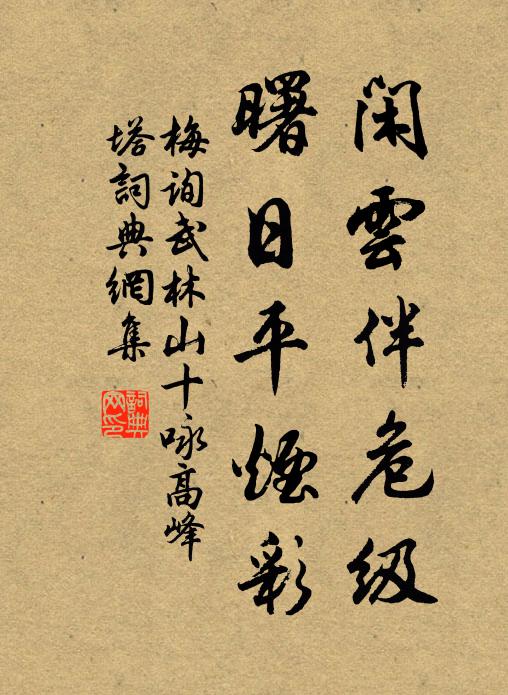 閑雲伴危级
曙日平煙彩
梅询武林山十咏高峰
塔詞典網集
詞典
网印